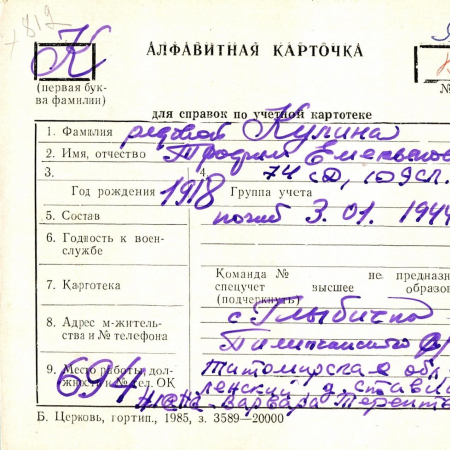 +812
К
АЛФАВИТНАЯ КАРТОЧКА
(первая бук-
ва фамилии)
№
для справок по учетной картотеке
1. Фамилия рядовой Кулина
2. Имя, отчество Трофим Емельянов
3. 4. 74 сд, 109 сп.
Год рождения 1918 Группа учета
5. Состав погиб 3.01.1944
6. Годность к воен-
службе
7. Карготека
Команда № не предназн
спецучет высшее образо
(подчеркнуть)
8. Адрес м-житель-
ства и № телефона
с. Глыбичка
9. Место работы, дол-
жность и № тел. ОК
694
Житомирская обл.
жена Варвара Терент
Б. Церковь, гортип., 1985, з. 3589—20000